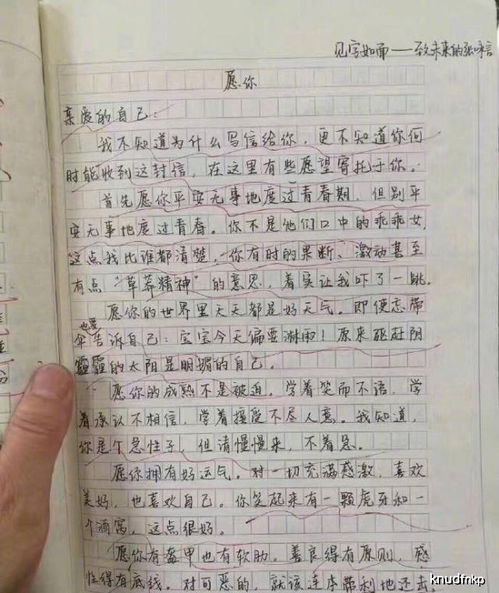 见字如面——致未来的张
愿你
亲爱的自己:
我不知道为什么写信给你,更不知道你何
时能收到这封信,在这里有些愿望寄托于你。
首先愿你平安无事地度过青春期,但别平
安无事地度过青春。你不是他们口中的乖乖女,
这点我比谁都清楚。你有时的果断、激动甚至
有点“草莽精神”的意思,着实让我吓了一跳。
愿你的世界里天天都是好天气。即使忘带
伞也要告诉自己:宝宝今天偏要淋雨!原来驱赶阴
霾的太阳是明媚的自己。
愿你的成熟不是被迫。学着笑而不语,学
着承认不相信,学着接受不尽人意。我知道,
你是个急性子,但请慢慢来,不着急。
愿你拥有好运气。对一切充满感激,喜欢
美好,也喜欢自己。你笑起来有一颗虎牙和一
个酒窝,这点很好。
愿你有盔甲也有软肋。善良得有原则,感
性得有底线。对可恶的,就该连本带利地还击。
knudfnkp